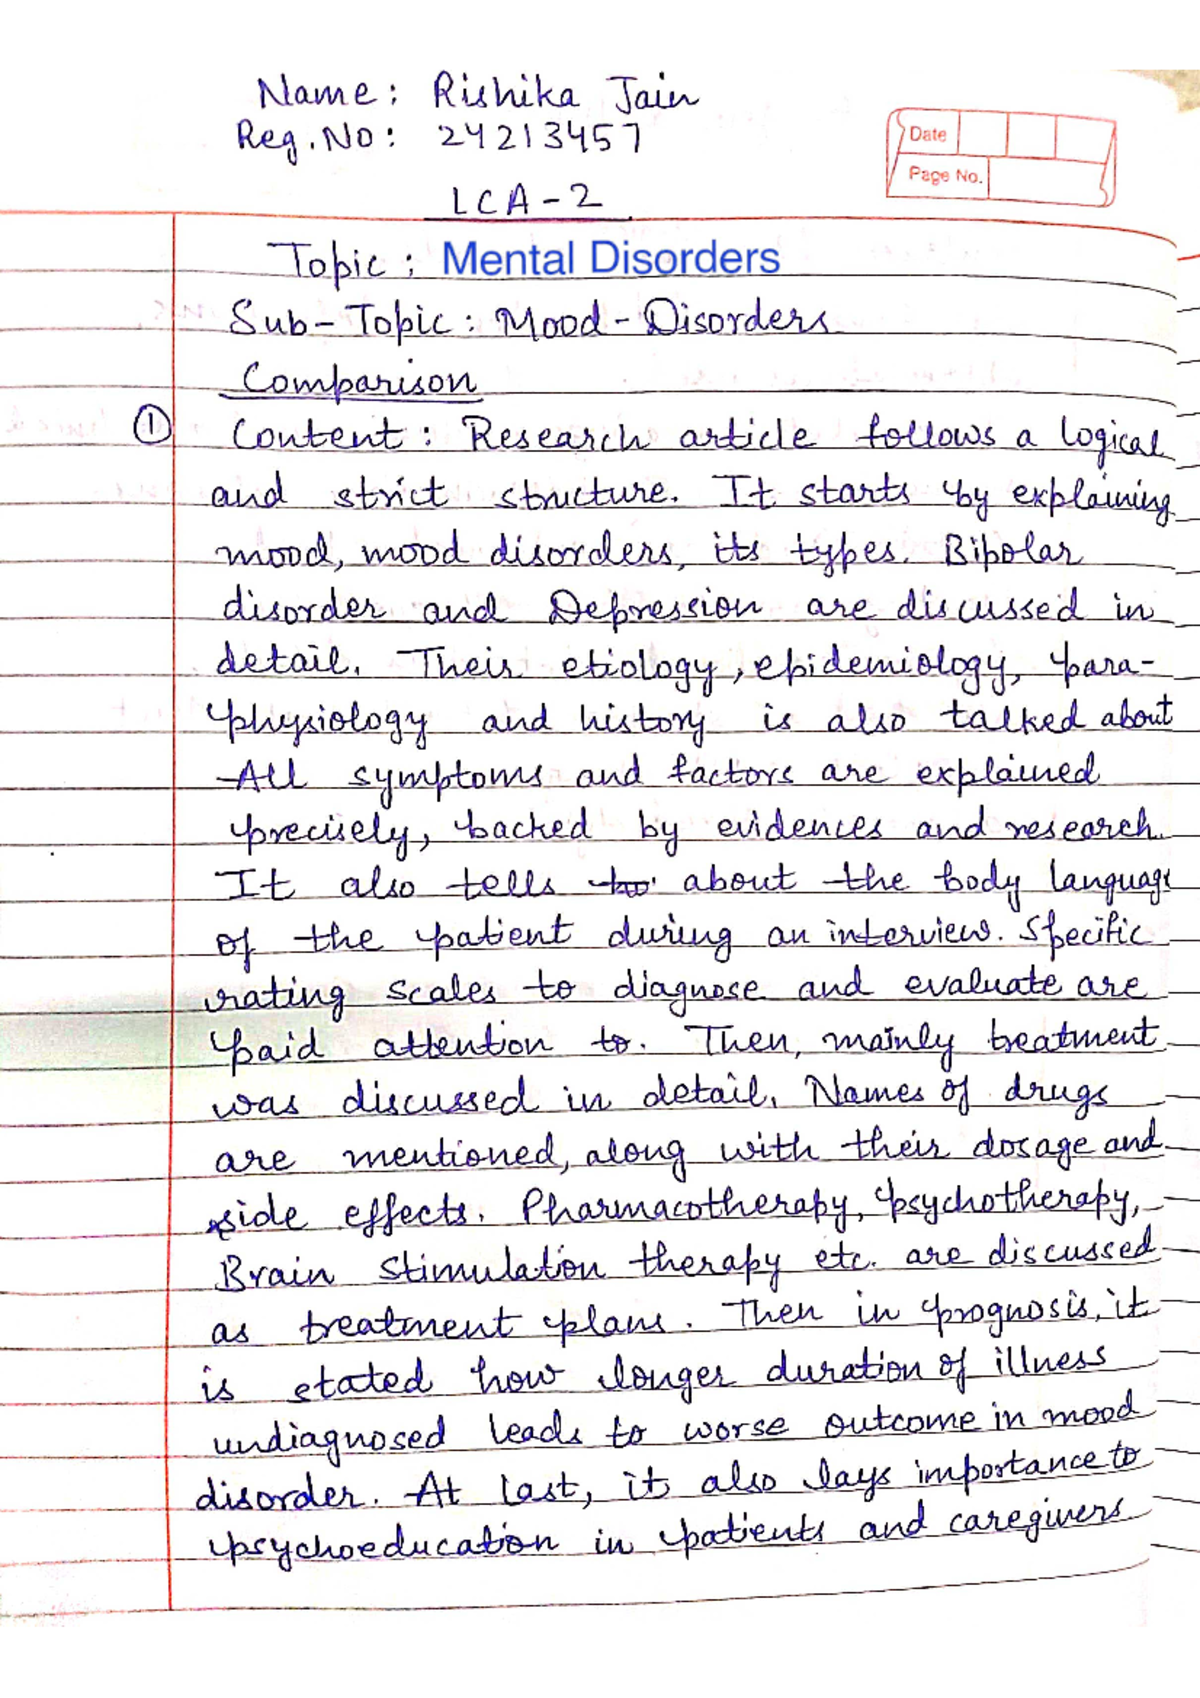 Name: Rishika Jain
Reg.No: 24213457
Date
Page No.
LCA-2
Topic: Mental Disorders
Sub-Topic: Mood-Disorders
Comparison
① Content: Research article follows a logical
and strict structure. It starts by explaining
mood, mood disorders, its types. Bipolar
disorder and Depression are discussed in
detail. Their etiology, epidemiology, para-
physiology and history is also talked about
All symptoms and factors are explained
precisely, backed by evidences and research.
It also tells to about the body language
of the patient during an interview. Specific
rating scales to diagnose and evaluate are
paid attention to. Then, mainly treatment
was discussed in detail. Names of drugs
are mentioned, along with their dosage and
side effects. Pharmacotherapy, psychotherapy,
Brain stimulation therapy etc. are discussed
as treatment plans. Then in prognosis, it
is stated how longer duration of illness
undiagnosed leads to worse outcome in mood
disorder. At last, it also lays importance to
psychoeducation in patients and caregivers